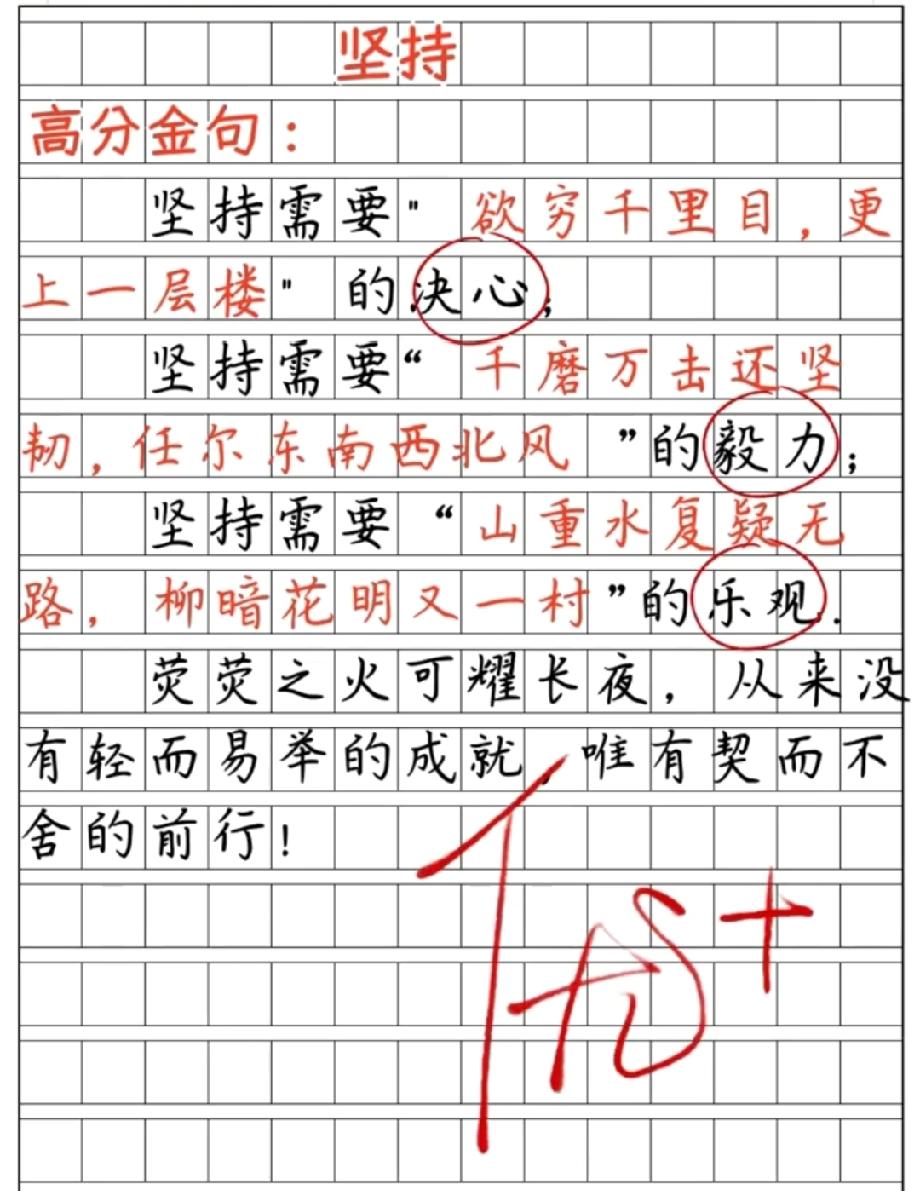 坚持
高分金句：
坚持需要"欲穷千里目，更
上一层楼"的决心；
坚持需要“千磨万击还坚
韧，任尔东南西北风”的毅力；
坚持需要“山重水复疑无
路，柳暗花明又一村”的乐观.
荧荧之火可耀长夜，从来没
有轻而易举的成就，唯有契而不
舍的前行！
优+